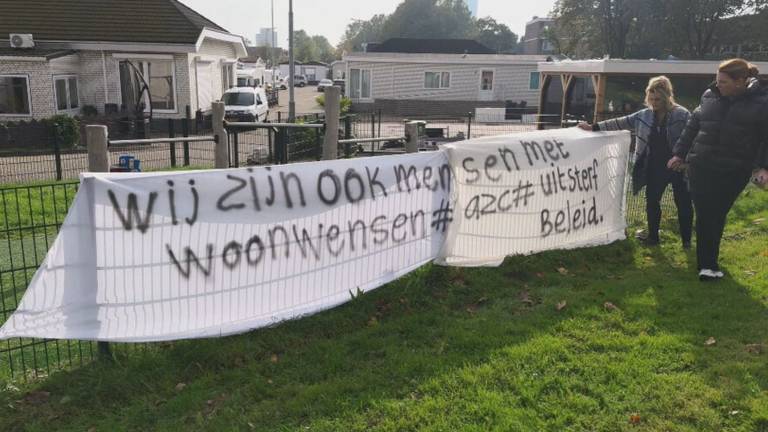 wij zijn ook mensen met
woonwensen# azc# uitsterf
Beleid.